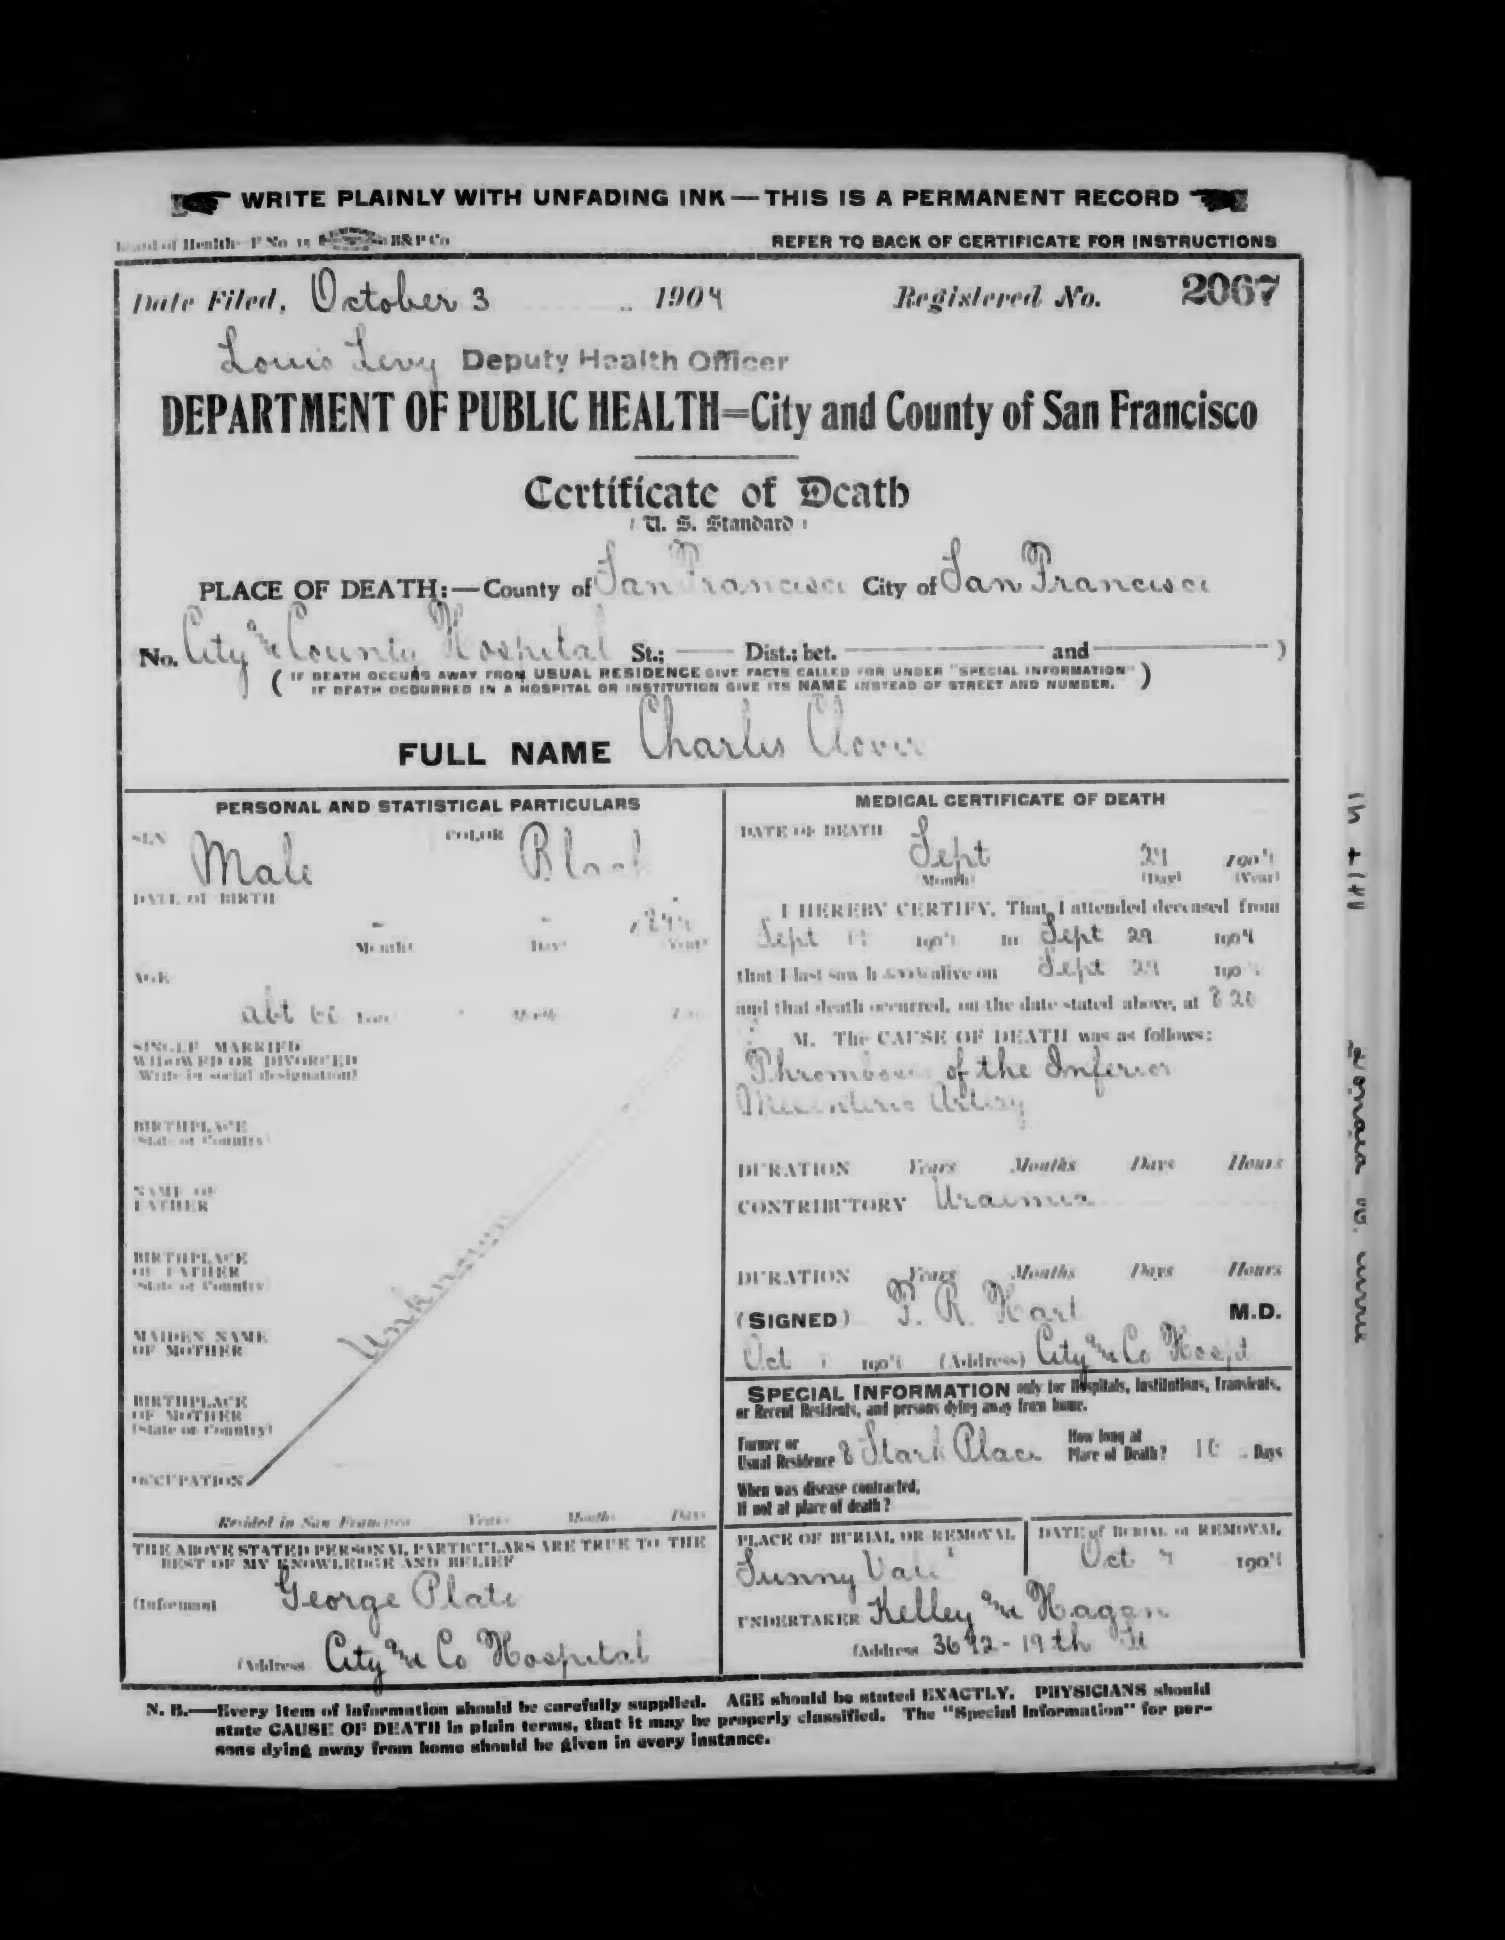 WRITE PLAINLY WITH UNFADING INK — THIS IS A PERMANENT RECORD
Board of Health—F No 15 B&P Co
REFER TO BACK OF CERTIFICATE FOR INSTRUCTIONS
Date Filed, October 3 1904 Registered No. 2067
Louis Levy Deputy Health Officer
DEPARTMENT OF PUBLIC HEALTH=City and County of San Francisco
Certificate of Death
( U. S. Standard )
PLACE OF DEATH:—County of San Francisco City of San Francisco
No. City and County Hospital St.; —— Dist.; bet. —— and —— )
( IF DEATH OCCURS AWAY FROM USUAL RESIDENCE GIVE FACTS CALLED FOR UNDER "SPECIAL INFORMATION"
IF DEATH OCCURRED IN A HOSPITAL OR INSTITUTION GIVE ITS NAME INSTEAD OF STREET AND NUMBER. )
FULL NAME Charles Clover
PERSONAL AND STATISTICAL PARTICULARS
SEX Male COLOR Black
DATE OF BIRTH
(Month) (Day) (Year)
AGE
abt Years Months Days
SINGLE MARRIED
WIDOWED OR DIVORCED
(Write in social designation)
BIRTHPLACE
(State or Country)
NAME OF
FATHER
BIRTHPLACE
OF FATHER
(State or Country)
Unknown
MAIDEN NAME
OF MOTHER
BIRTHPLACE
OF MOTHER
(State or Country)
OCCUPATION
Resided in San Francisco Years Months Days
THE ABOVE STATED PERSONAL PARTICULARS ARE TRUE TO THE
BEST OF MY KNOWLEDGE AND BELIEF
(Informant George Plate
(Address City and Co Hospital
MEDICAL CERTIFICATE OF DEATH
DATE OF DEATH
Sept 29 1904
(Month) (Day) (Year)
I HEREBY CERTIFY, That I attended deceased from
Sept 1904 to Sept 29 1904
that I last saw h alive on Sept 29 1904
and that death occurred, on the date stated above, at 8 20
M. The CAUSE OF DEATH was as follows:
Thrombosis of the Inferior
Mesenteric Artery
DURATION Years Months Days Hours
CONTRIBUTORY Uraemia
DURATION Years Months Days Hours
(SIGNED) T. R. Hart M.D.
Oct 1904 (Address) City and Co Hospt
SPECIAL INFORMATION only for Hospitals, Institutions, Transients,
or Recent Residents, and persons dying away from home.
Former or
Usual Residence 8 Stark Place
How long at
Place of Death? Days
When was disease contracted,
If not at place of death?
PLACE OF BURIAL OR REMOVAL
Sunny Vale
DATE of BURIAL or REMOVAL
Oct 4 1904
UNDERTAKER Kelley and Hagan
(Address 3692 - 19th St
N. B.—Every item of information should be carefully supplied. AGE should be stated EXACTLY. PHYSICIANS should
state CAUSE OF DEATH in plain terms, that it may be properly classified. The "Special Information" for per-
sons dying away from home should be given in every instance.